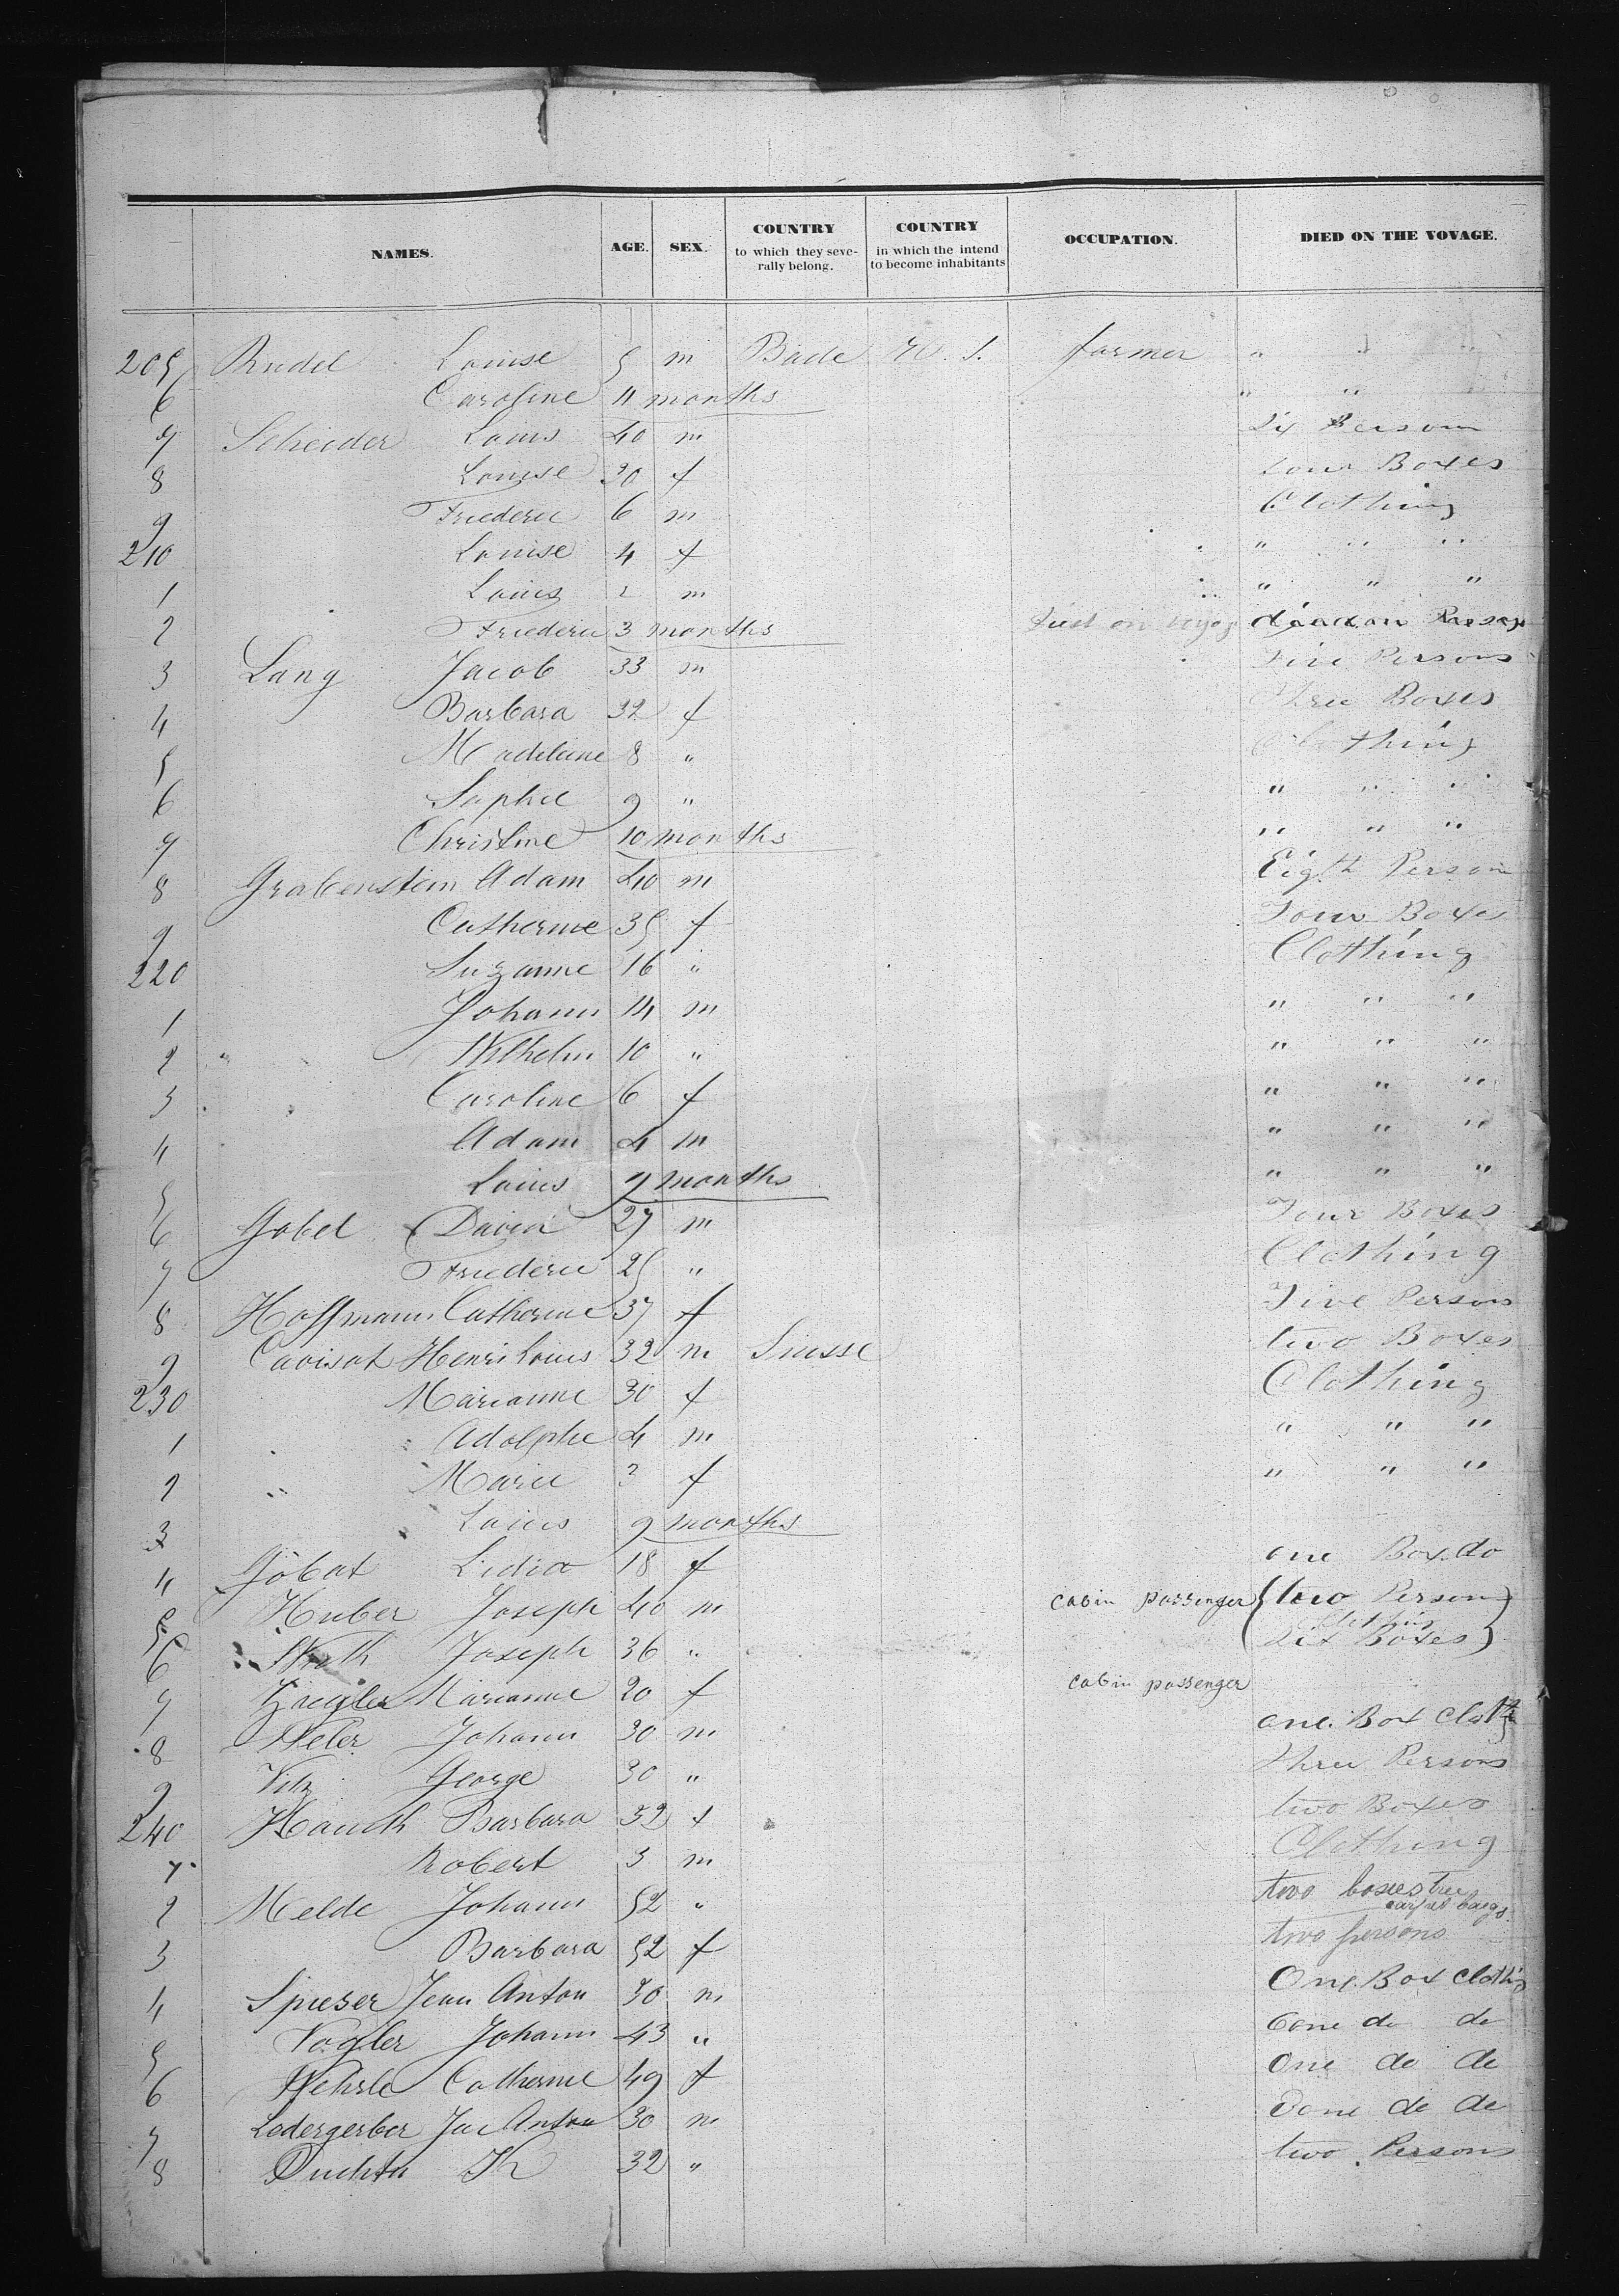 NAMES. AGE. SEX. COUNTRY to which they severally belong. COUNTRY in which the intend to become inhabitants OCCUPATION. DIED ON THE VOYAGE.
205 Rudel Louise 5 m Bade U. S. farmer " " "
6 Caroline 11 months " "
7 Scheider Louis 40 m Six Persom
8 Louise 30 f four Boxes
9 Friederic 6 m Clothing
210 Louise 4 f " " "
1 Louis 2 m " " "
2 Friederic 3 months died on voyag
3 Lang Jacob 33 m Five Persons
4 Barbara 32 f Three Boxes
5 Madeleine 8 " Clothing
6 Sophie 9 " " " "
7 Christine 10 months " " "
8 Grabenstein Adam 40 m Eight Person
9 Catherine 35 f Four Boxes
220 Suzanne 16 " Clothing
1 Johann 14 m " " "
2 " Wilhelm 10 " " " "
3 Caroline 6 f " " "
4 Adam 4 m " " "
5 Louis 9 months " " "
6 Gobel David 27 m Four Boxes
7 Friederic 25 " Clothing
8 Hoffmann Catherine 37 f Five Persons
9 Cavisot Henri Louis 32 m Suisse two Boxes
230 Marianne 30 f Clothing
1 Adolphe 4 m " " "
2 " Marie 3 f " " "
3 Louis 9 months
4 Göbat Lidia 18 f one Box do
5 Huber Joseph 40 m cabin passenger two Person
Clothing
6 Joseph 36 " six Boxes
7 Ziegler Marianne 20 f cabin passenger
8 Johann 30 m one Box Cloth
9 George 30 " three Persons
240 Hauth Barbara 32 f two Boxes
Robert 3 m Clothing
2 Melde Johann 52 " two boxes tree
carpet bags
3 Barbara 52 f two persons
4 Spieser Jean Anton 30 m One Box Clothig
5 Vogler Johann 43 " oone do do
6 Wehrle Catherine 49 f One do de
7 Ledergerber Jac Anton 30 m Oone de de
8 32 " two Persons